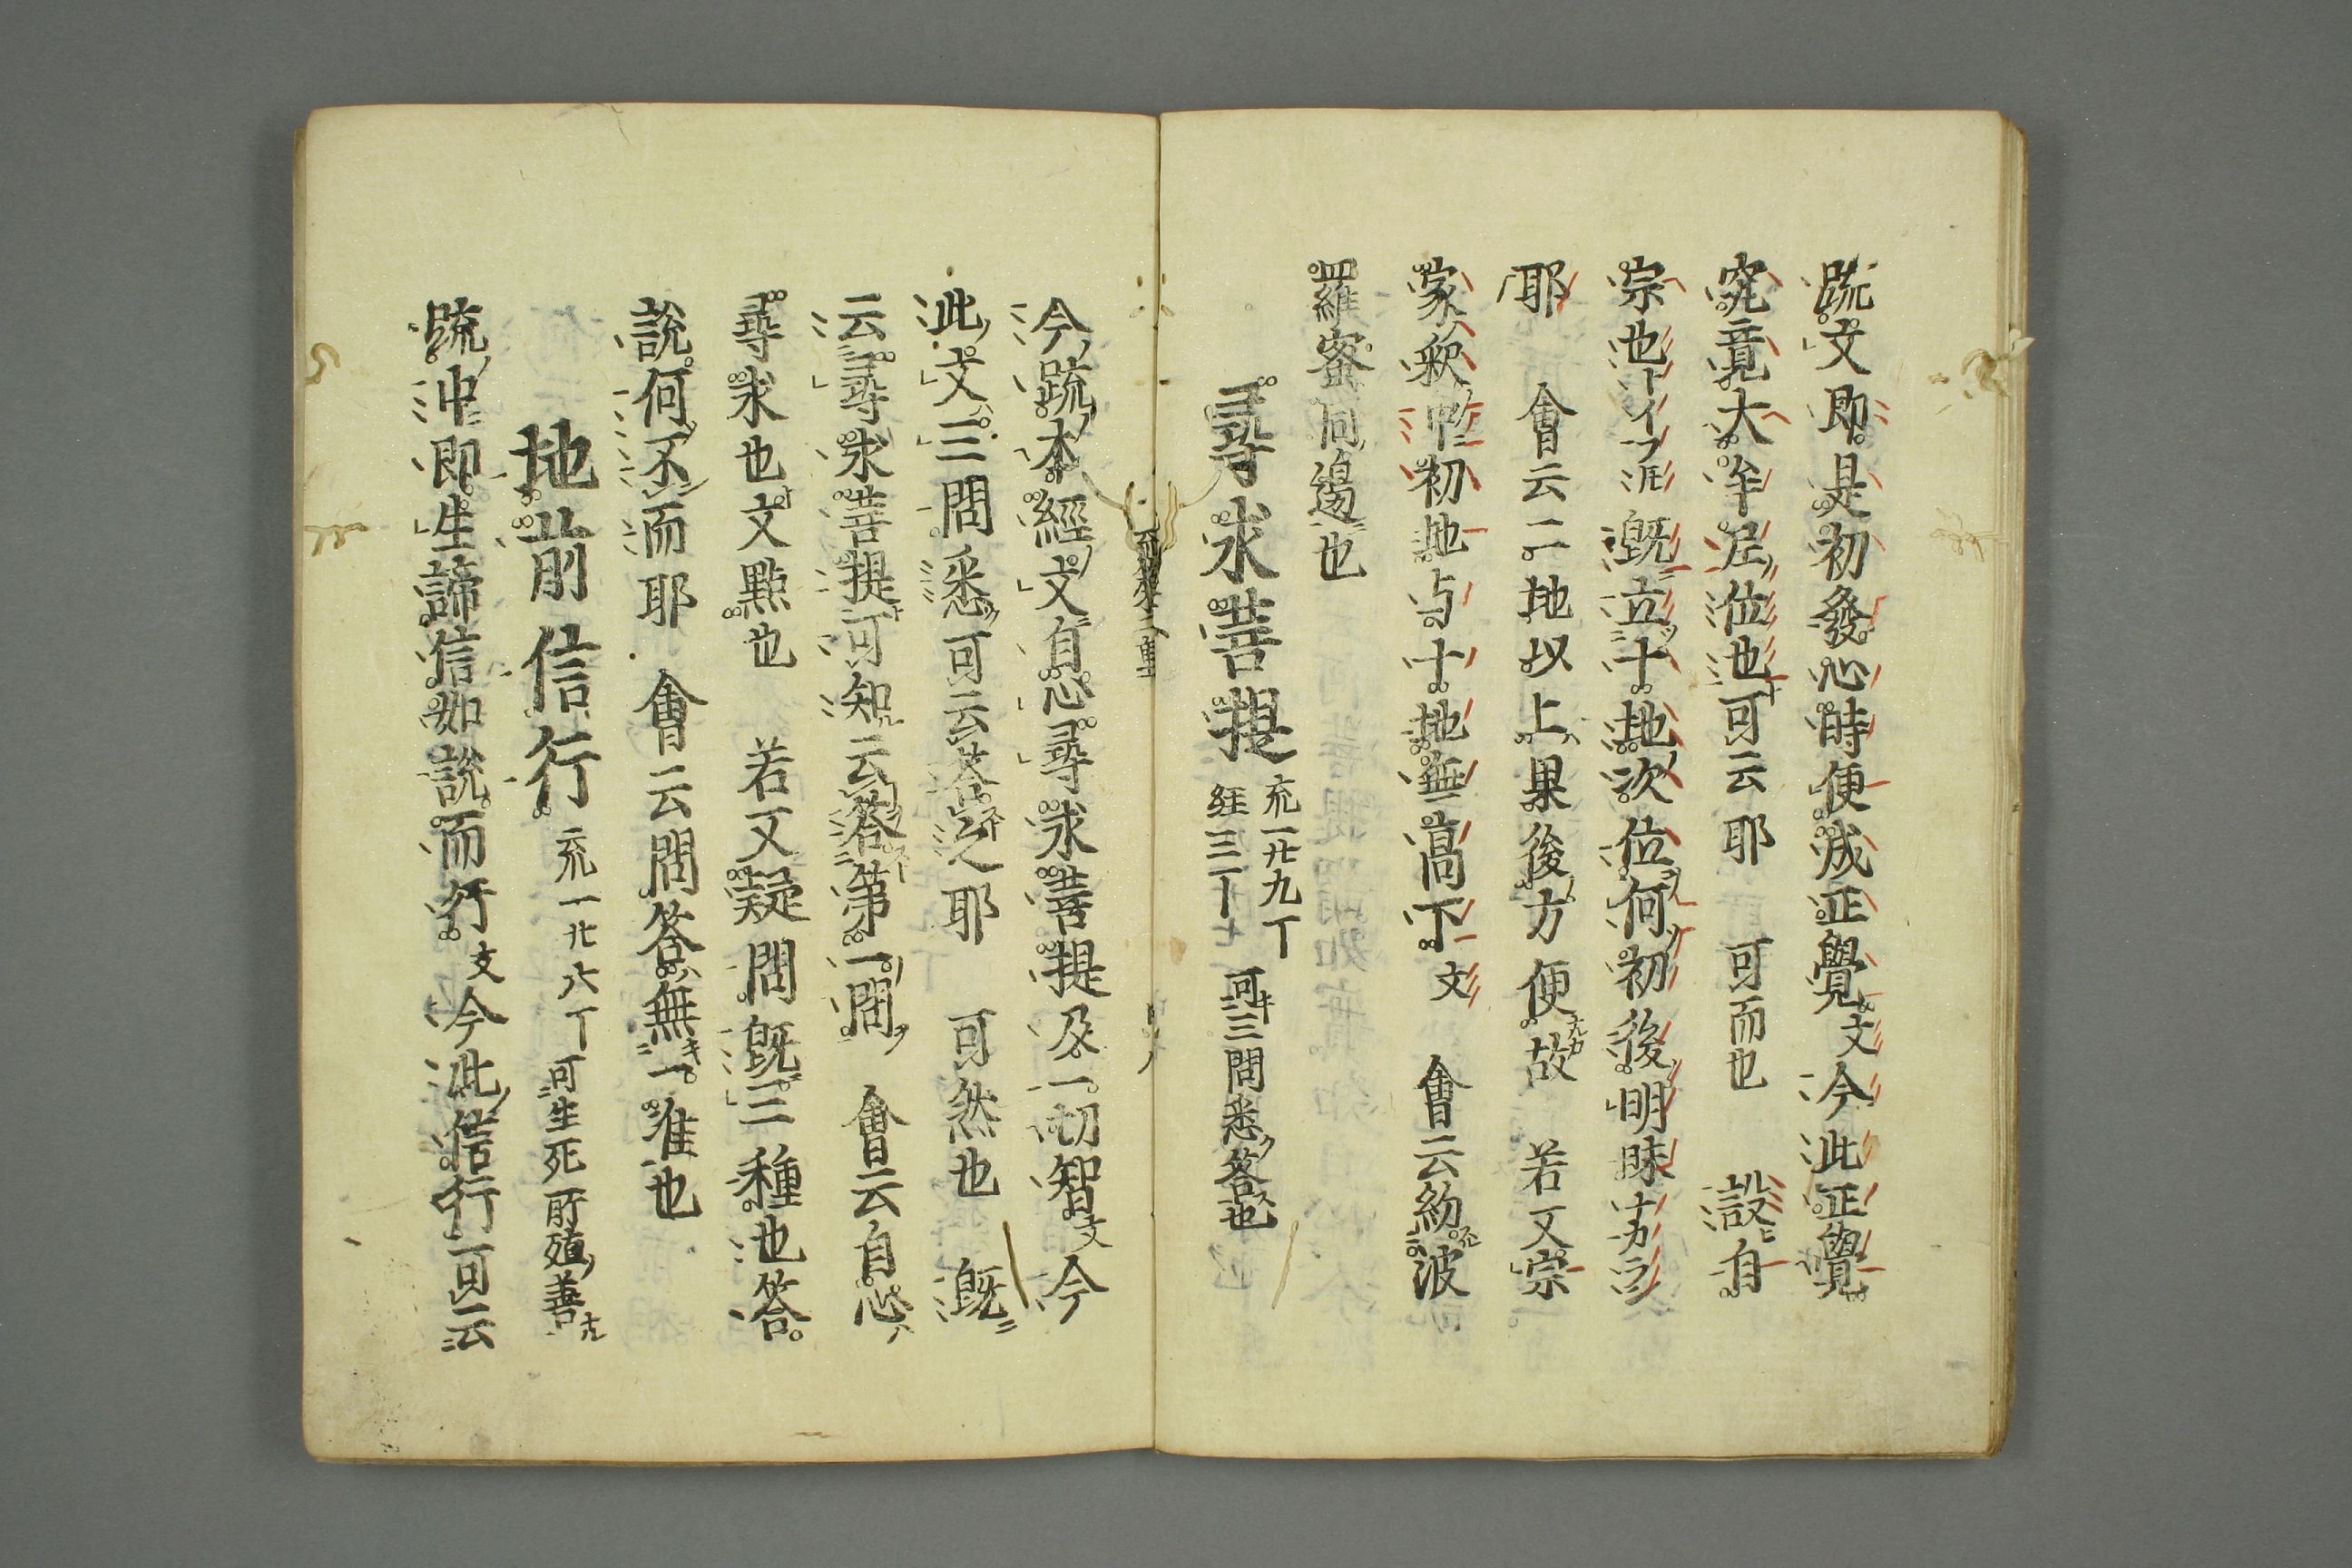 疏文即是初發心時便成正覺文今此正覺
究竟大牟尼位也可云耶　可而也　設自
宗也トイフ𪜈既立十地次位何初後明昧ナカラン
耶　會云二地以上果後方便故　若又宗
家釈中初地与十地無高下文　會云約波
羅蜜同邊也
尋求菩提
充一廿九丁
経三二丁
可三問悉答也
今疏本經文文自忽尋求菩提及一切智文今
此文三問悉可云答之耶　可然也　既
云尋求菩提可知云答第一問　會云自忽
尋求也文點也　若又疑問既三種也答
説何不而耶　會云問答無一准也
地前信行　充一廿六丁　可生死所殖善
疏中即生諦信如説而行文今此信行可云